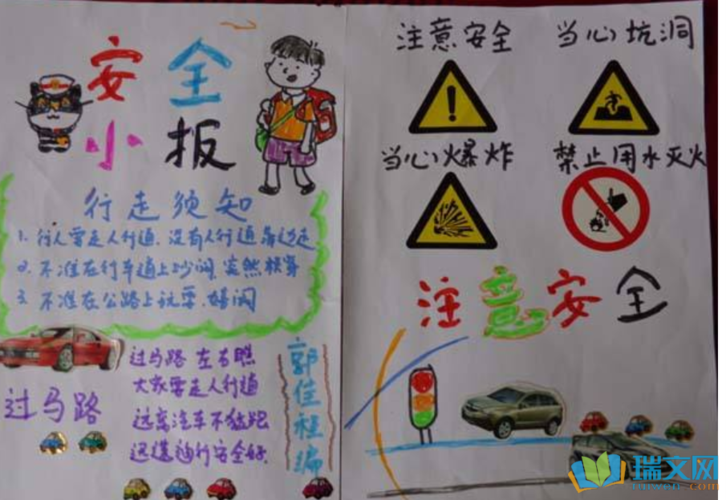 安全
小报
行走须知
1. 行人要走人行道,没有人行道靠边走
2. 不准在行车道上吵闹,突然横穿
3. 不准在公路上玩耍、嬉闹
过马路
过马路 左右瞧
大家要走人行道
远离汽车不猛跑
安全好
郭佳程编
注意安全
当心坑洞
当心爆炸
禁止用水灭火
注意安全
瑞文网